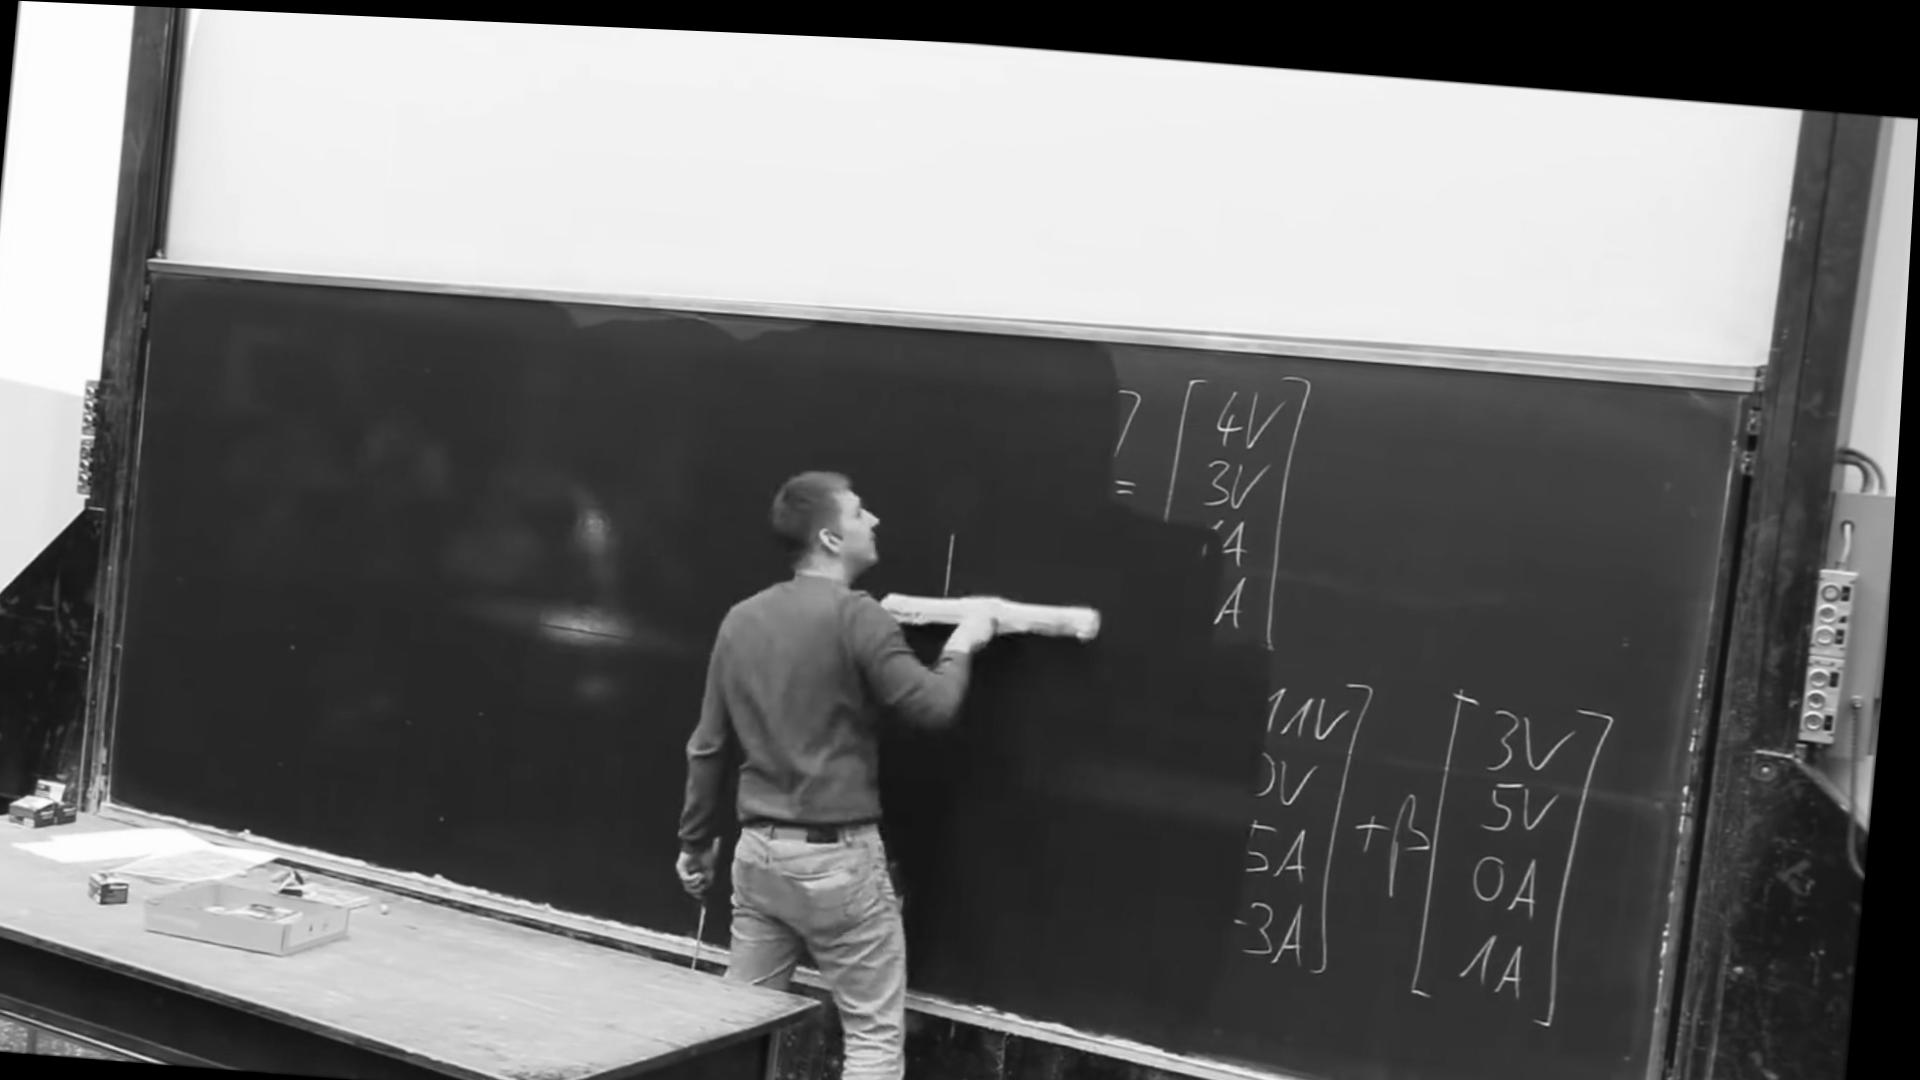 = [ 4V
3V
A
A ]
11V
0V
5A
-3A ] + β [ 3V
5V
0A
1A ]